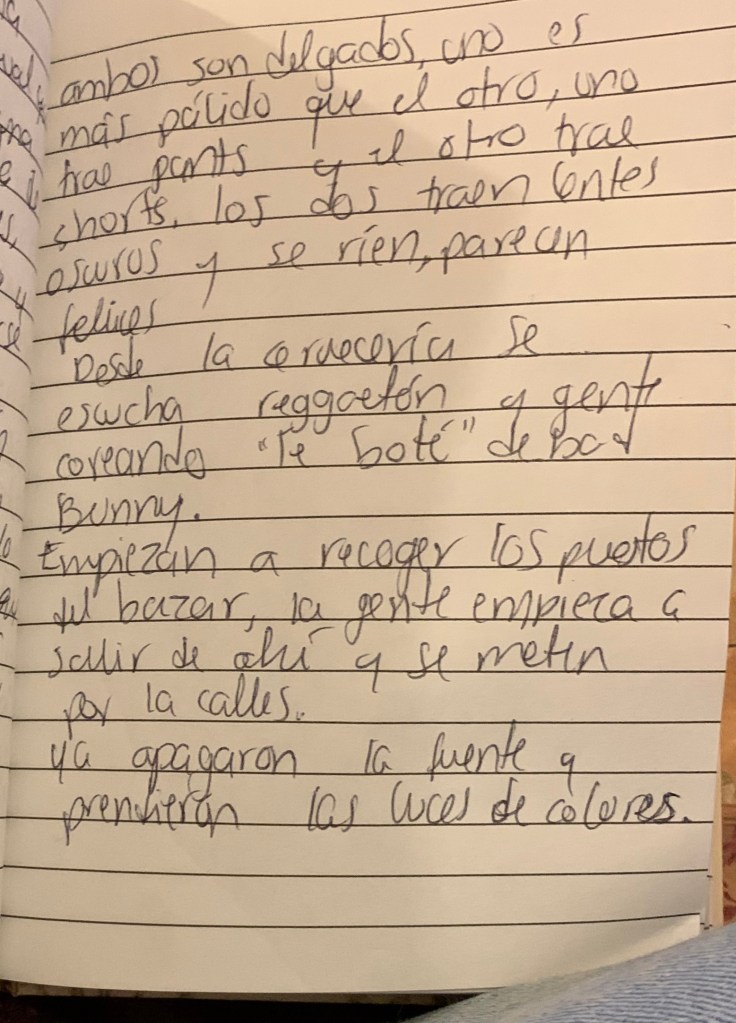 ambos son delgados, uno es
más pálido que el otro, uno
trae pants y el otro trae
shorts, los dos traen lentes
oscuros y se ríen, parecen
felices
Desde la cervecería se
escucha reggaetón y gente
coreando "Te boté" de bad
Bunny.
Empiezan a recoger los puestos
del bazar, la gente empieza a
salir de ahí y se meten
por la calles.
ya apagaron la fuente y
prendierón las luces de colores.